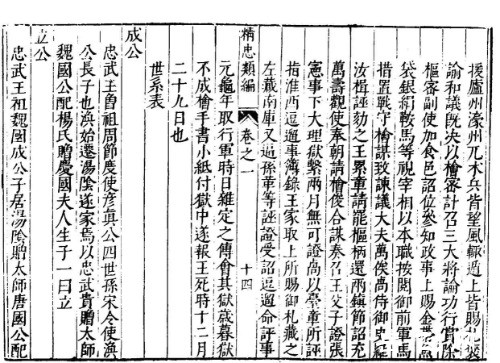 援廬州濠州兀木兵皆望風輒遁上皆賜札褒
諭和議既決以檜密計召三大將論功行賞除
樞密副使加食邑詔位參知政事上賜金帶
袋銀絹鞍馬等視宰相以本職按閱御前軍馬
措置戰守檜謀致諫議大夫萬俟卨侍御史
汝楫誣劾之王累章請罷樞柄還兩鎮節詔充
萬壽觀使奉朝請檜俊合謀奏召王父子證張
憲事下大理獄繫兩月無可證卨以臺章所評
指淮西逗遛事簿錄王家取上所賜御札藏之
左藏南庫又逼孫革等誣證受詔逗遛命評事
精忠類編 卷之一 十四
元龜年取行軍時日雜定之傅會其獄歲暮獄
不成檜手書小紙付獄中遂報王死時十二月
二十九日也
世系表
成公
忠武王曾祖周節度使彥真公四世孫宋令使渙
公長子也渙始遷湯陰遂家焉以忠武貴贈太師
魏國公配楊氏贈慶國夫人生子一曰立
立公
忠武王祖魏國成公子居湯陰贈太師唐國公配